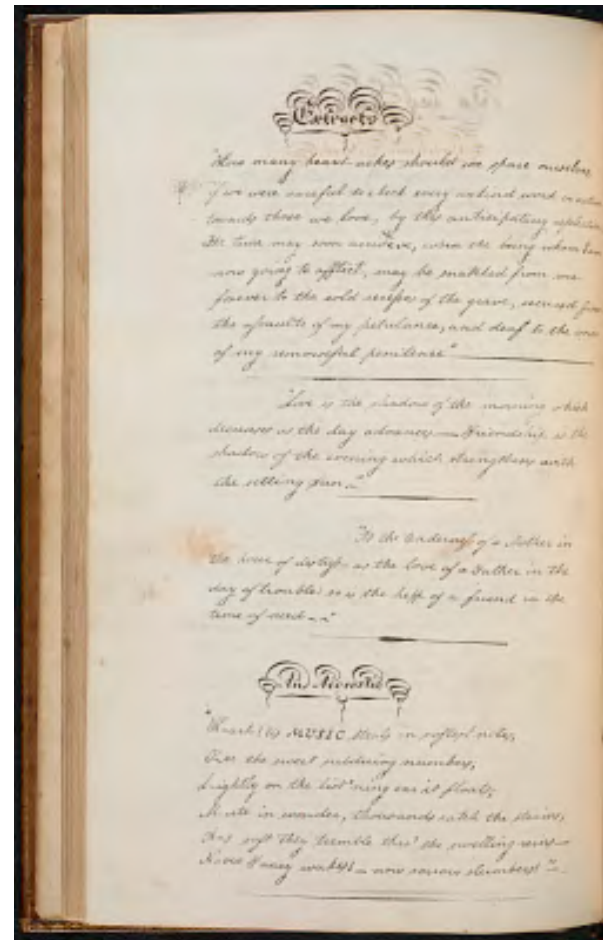 Extracts
"How many heart-aches should we spare ourselves
if we were careful to check every unkind word or action
towards those we love, by this anticipating reflection
The time may soon arrive, when the being whom I am
now going to afflict, may be snatched from me
forever to the cold recesses of the grave, secured from
the assaults of my petulance, and deaf to the voice
of my remorseful penitence"
"Love is the shadow of the morning which
decreases as the day advances — Friendship is the
shadow of the evening which strengthens with
the setting sun —"
"As the tenderness of a Mother in
the hour of distress — as the love of a Father in the
day of trouble so is the help of a friend in the
time of need — "
An Acrostic
"Hark! tis MUSIC steals in softest notes,
Over the sweet numbers,
Lightly on the list'ning ear it floats;
Mute in wonder, thousands catch the strains,
As soft they tremble thro' the swelling veins —
Now Fancy wakes — now sorrow slumbers!" —